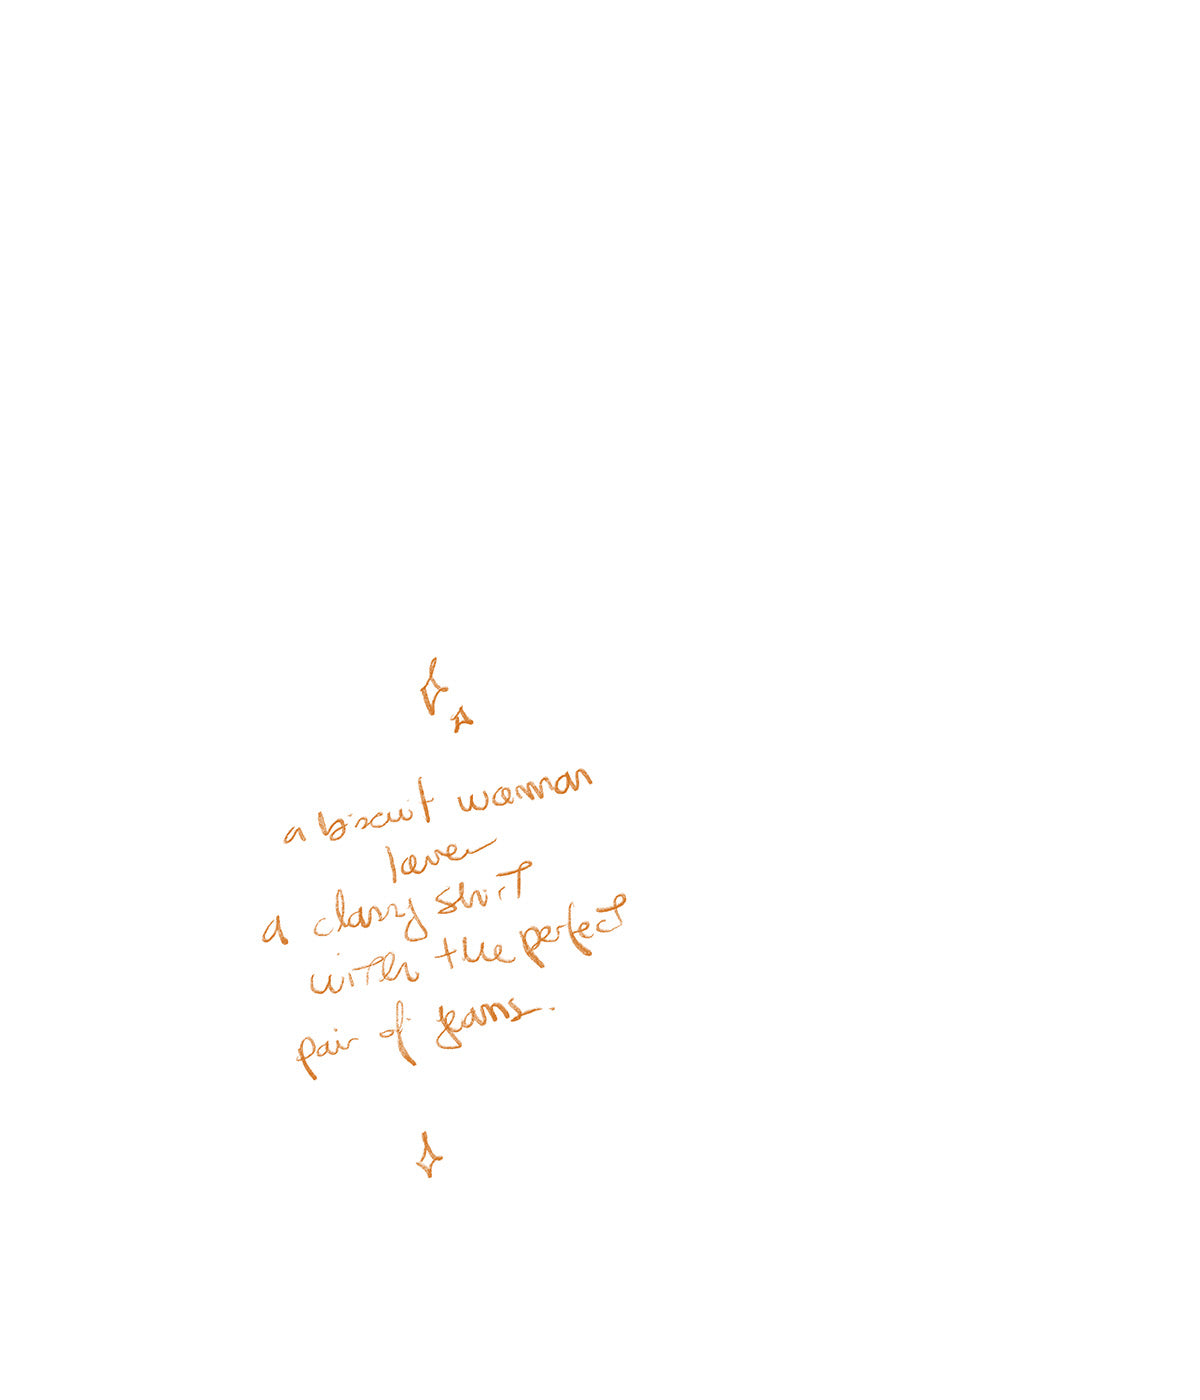 a biscuit woman
loves
a classy shirt
with the perfect
pair of jeans.